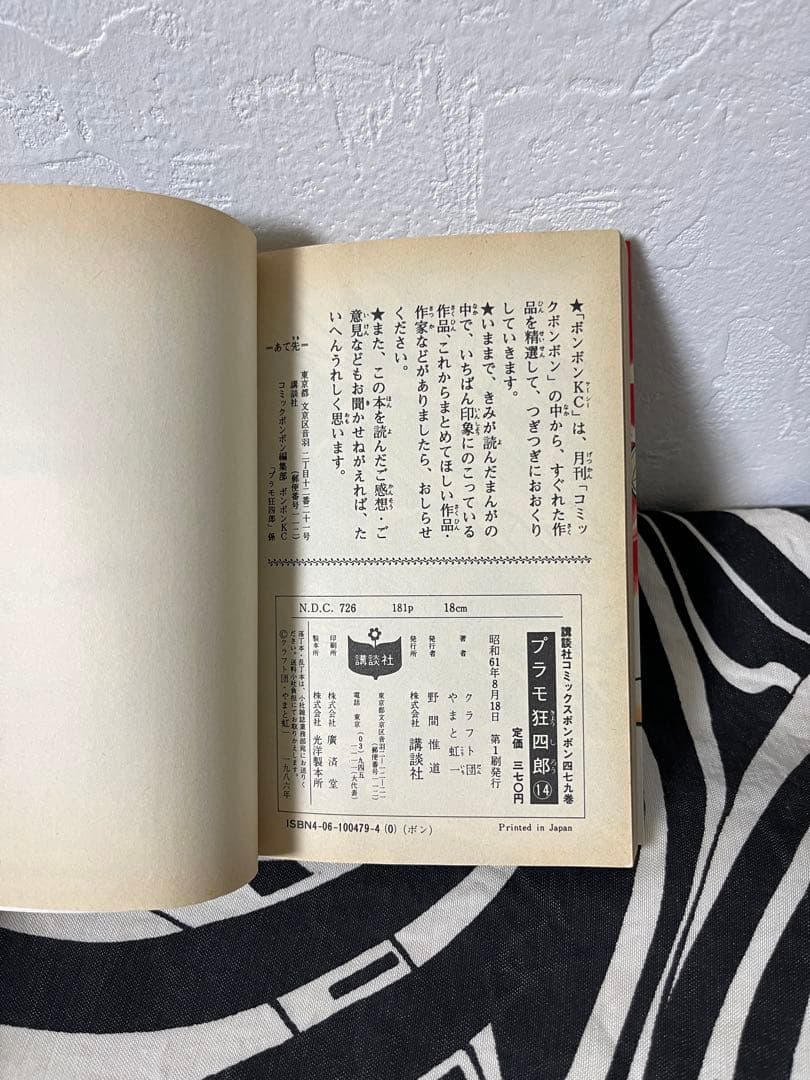 ★「ボンボンKC」は、月刊「コミッ
クボンボン」の中から、すぐれた作
品を精選して、つぎつぎにおおくり
していきます。
★いままで、きみが読んだまんがの
中で、いちばん印象にのこっている
作品、これからまとめてほしい作品・
作家などがありましたら、おしらせ
ください。
★また、この本を読んだご感想・ご
意見などもお聞かせねがえれば、た
いへんうれしく思います。
＝あて先＝
東京都 文京区音羽 二丁目十二番二十一号
(郵便番号一一二)
講談社
コミックボンボン編集部 ボンボンKC
「プラモ狂四郎」係
N.D.C. 726 181p 18cm
講談社コミックスボンボン四七九巻
プラモ狂四郎 ⑭
定価 三七〇円
昭和61年8月18日 第1刷発行
著者 クラフト団
やまと虹一
発行者 野間惟道
発行所 株式会社 講談社
東京都文京区音羽二-一二-二一
(郵便番号一一二)
電話 東京(03)九四五-一一一一(大代表)
講談社
印刷所 株式会社 廣済堂
製本所 株式会社 光洋製本所
落丁本・乱丁本は、小社雑誌業務部宛にお送りく
ださい。送料小社負担にてお取りかえします。
©クラフト団・やまと虹一 一九八六年
ISBN4-06-100479-4 (0) (ボン)
Printed in Japan